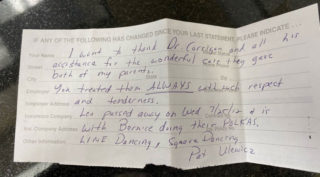 IF ANY OF THE FOLLOWING HAS CHANGED SINCE YOUR LAST STATEMENT, PLEASE INDICATE...
Your Name I want to thank Dr. and all his
Street assistance for the wonderful care they gave
City both of my parents.
Employer You treated them ALWAYS with such respect
Employer Address and tenderness.
Insurance Company Len passed away on Wed 7/25/12 & is
Ins. Company Address with Bernice doing their POLKAS,
Other Information LINE Dancing, Square Dancing.
Pat Ulewicz